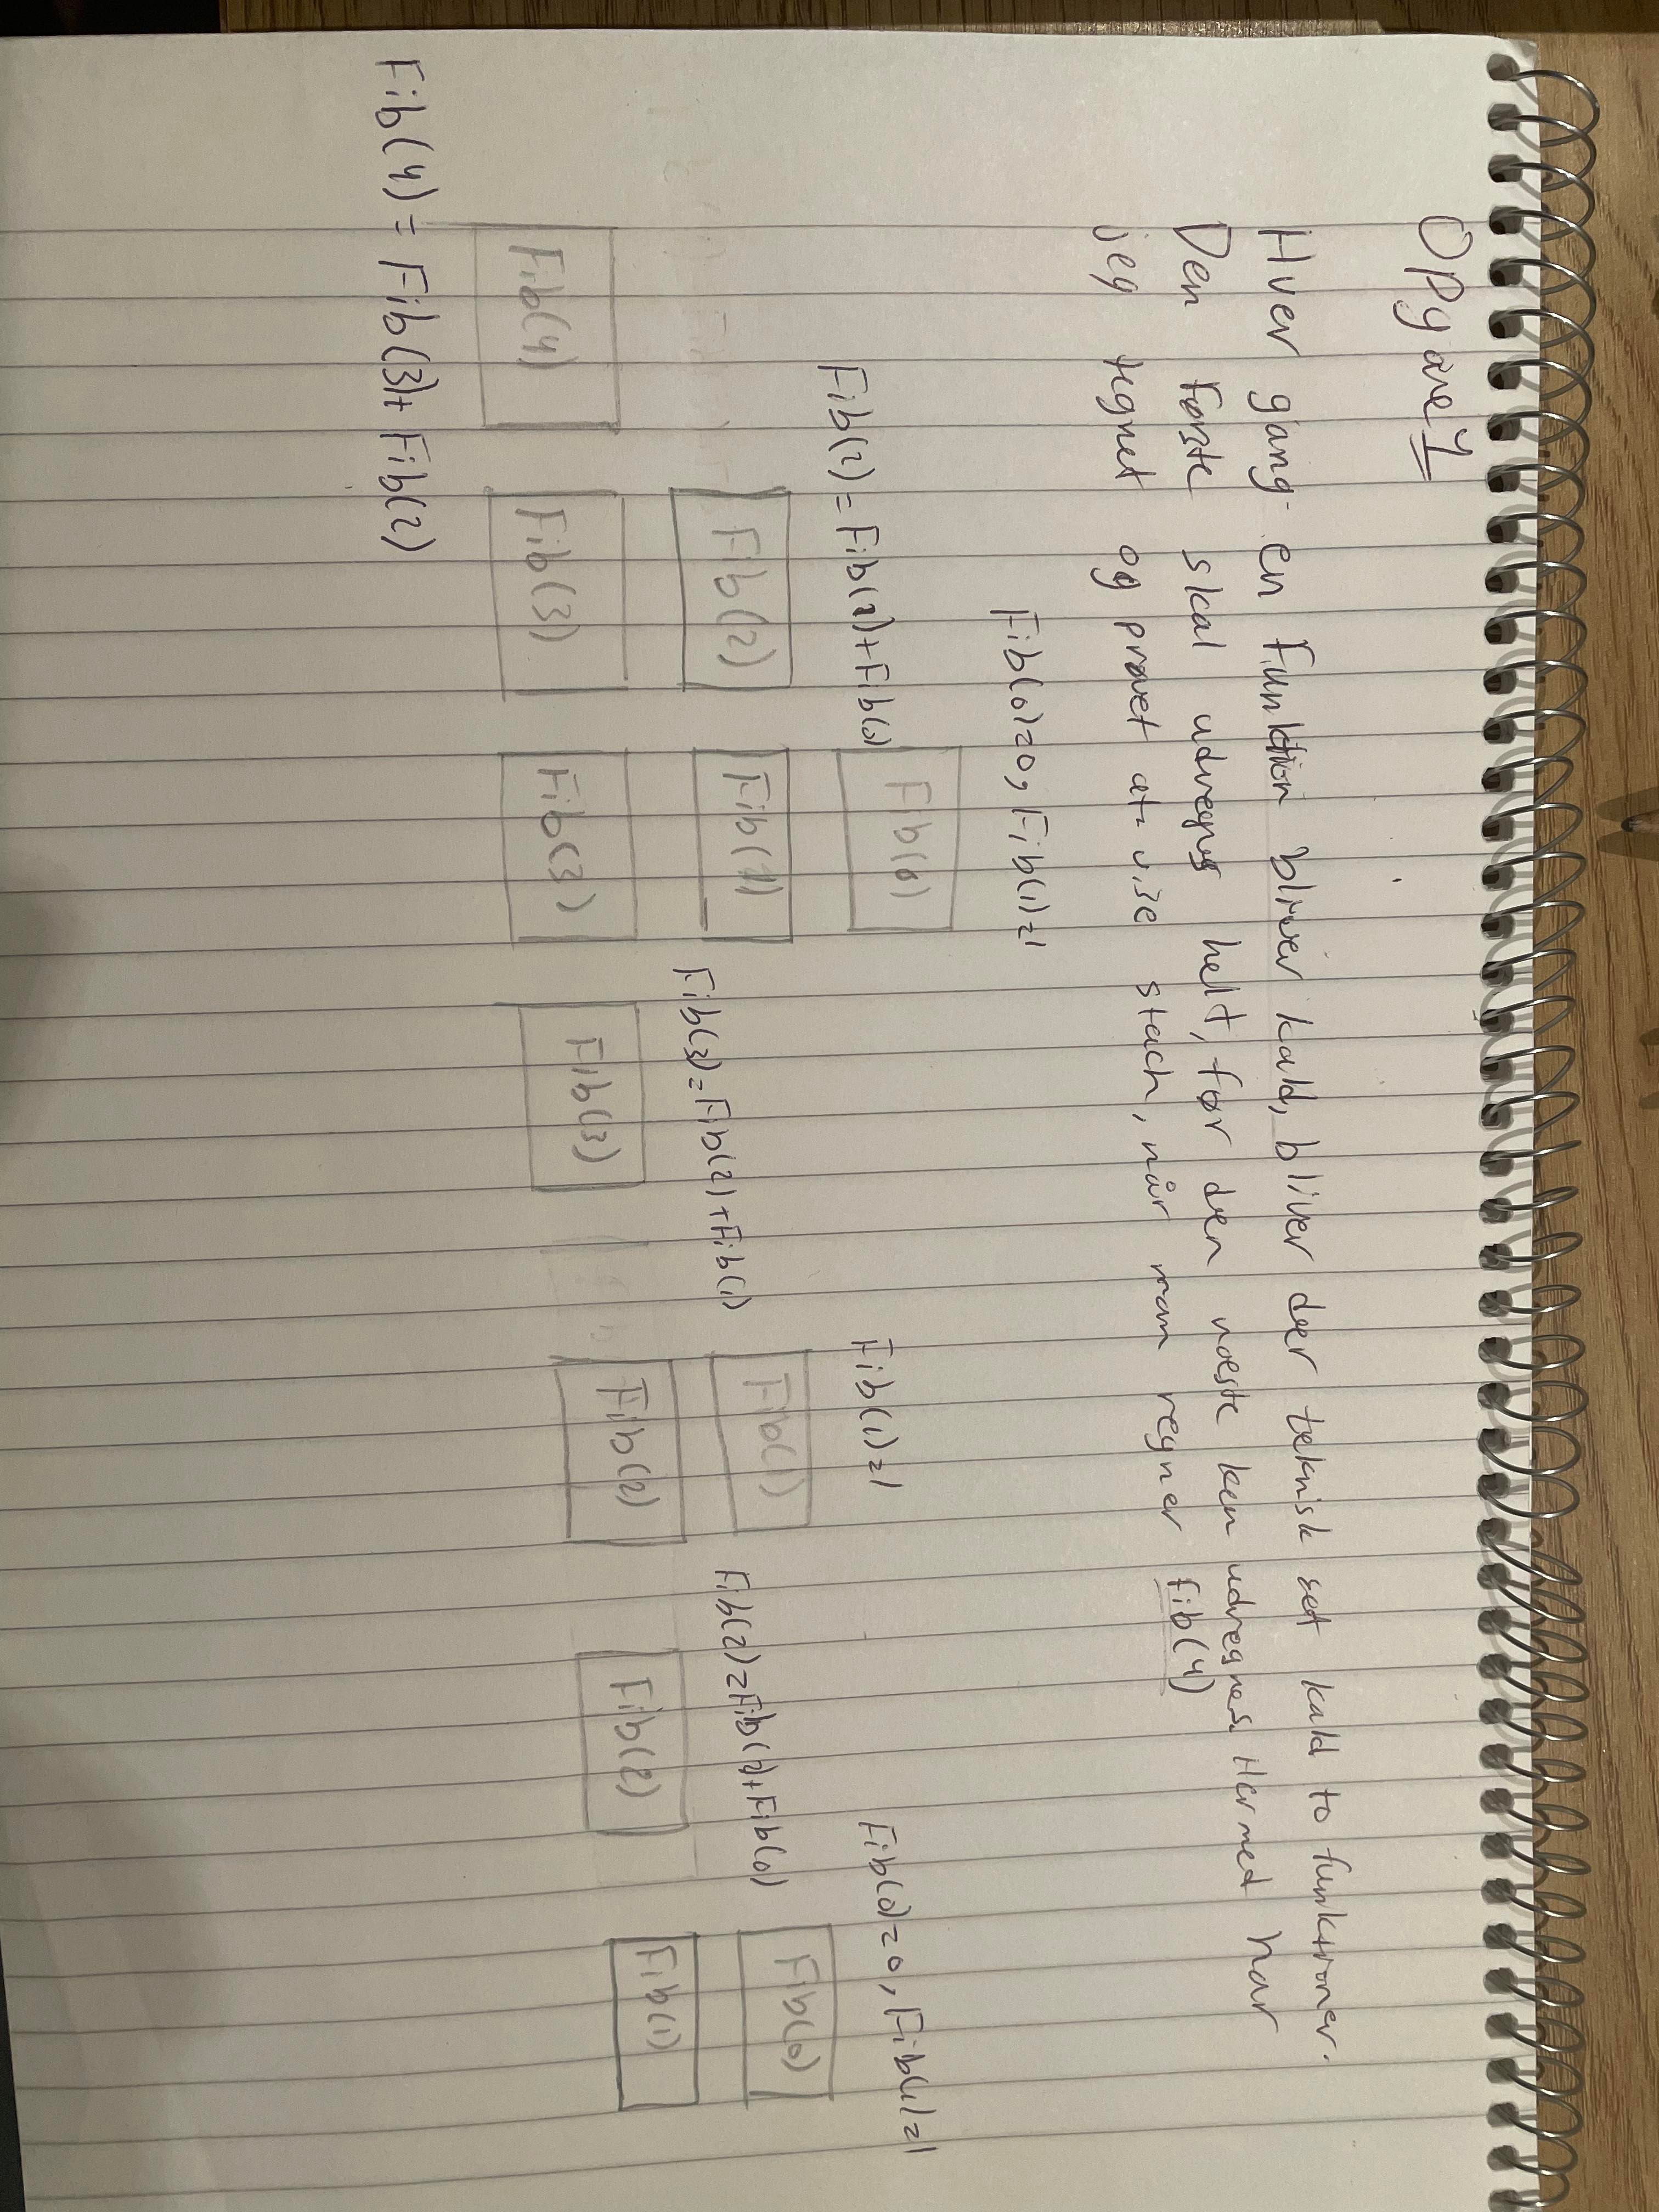 Opgave 1
Hver gang en Funktion bliver kald, bliver der teknisk set kald to funktioner.
Den Første skal udregnes helt, før den næste kan udregnes. Hermed har
jeg tegnet og prøvet at vise stach, når man regner Fib(4)
Fib(0)=0, Fib(1)=1
Fib(0)
Fib(2) = Fib(1)+Fib(0)
Fib(2)
Fib(1)
Fib(4)
Fib(3)
Fib(3)
Fib(3)=Fib(2)+Fib(1)
Fib(3)
Fib(1)=1
Fib(1)
Fib(2)
Fib(2)=Fib(1)+Fib(0)
Fib(2)
Fib(0)=0, Fib(1)=1
Fib(0)
Fib(1)
Fib(4) = Fib(3)+ Fib(2)